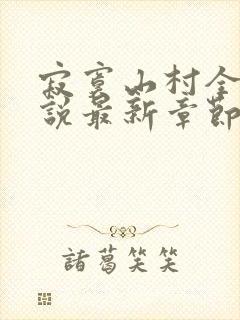 寂寞山村全
說最新章節
諸葛笑笑